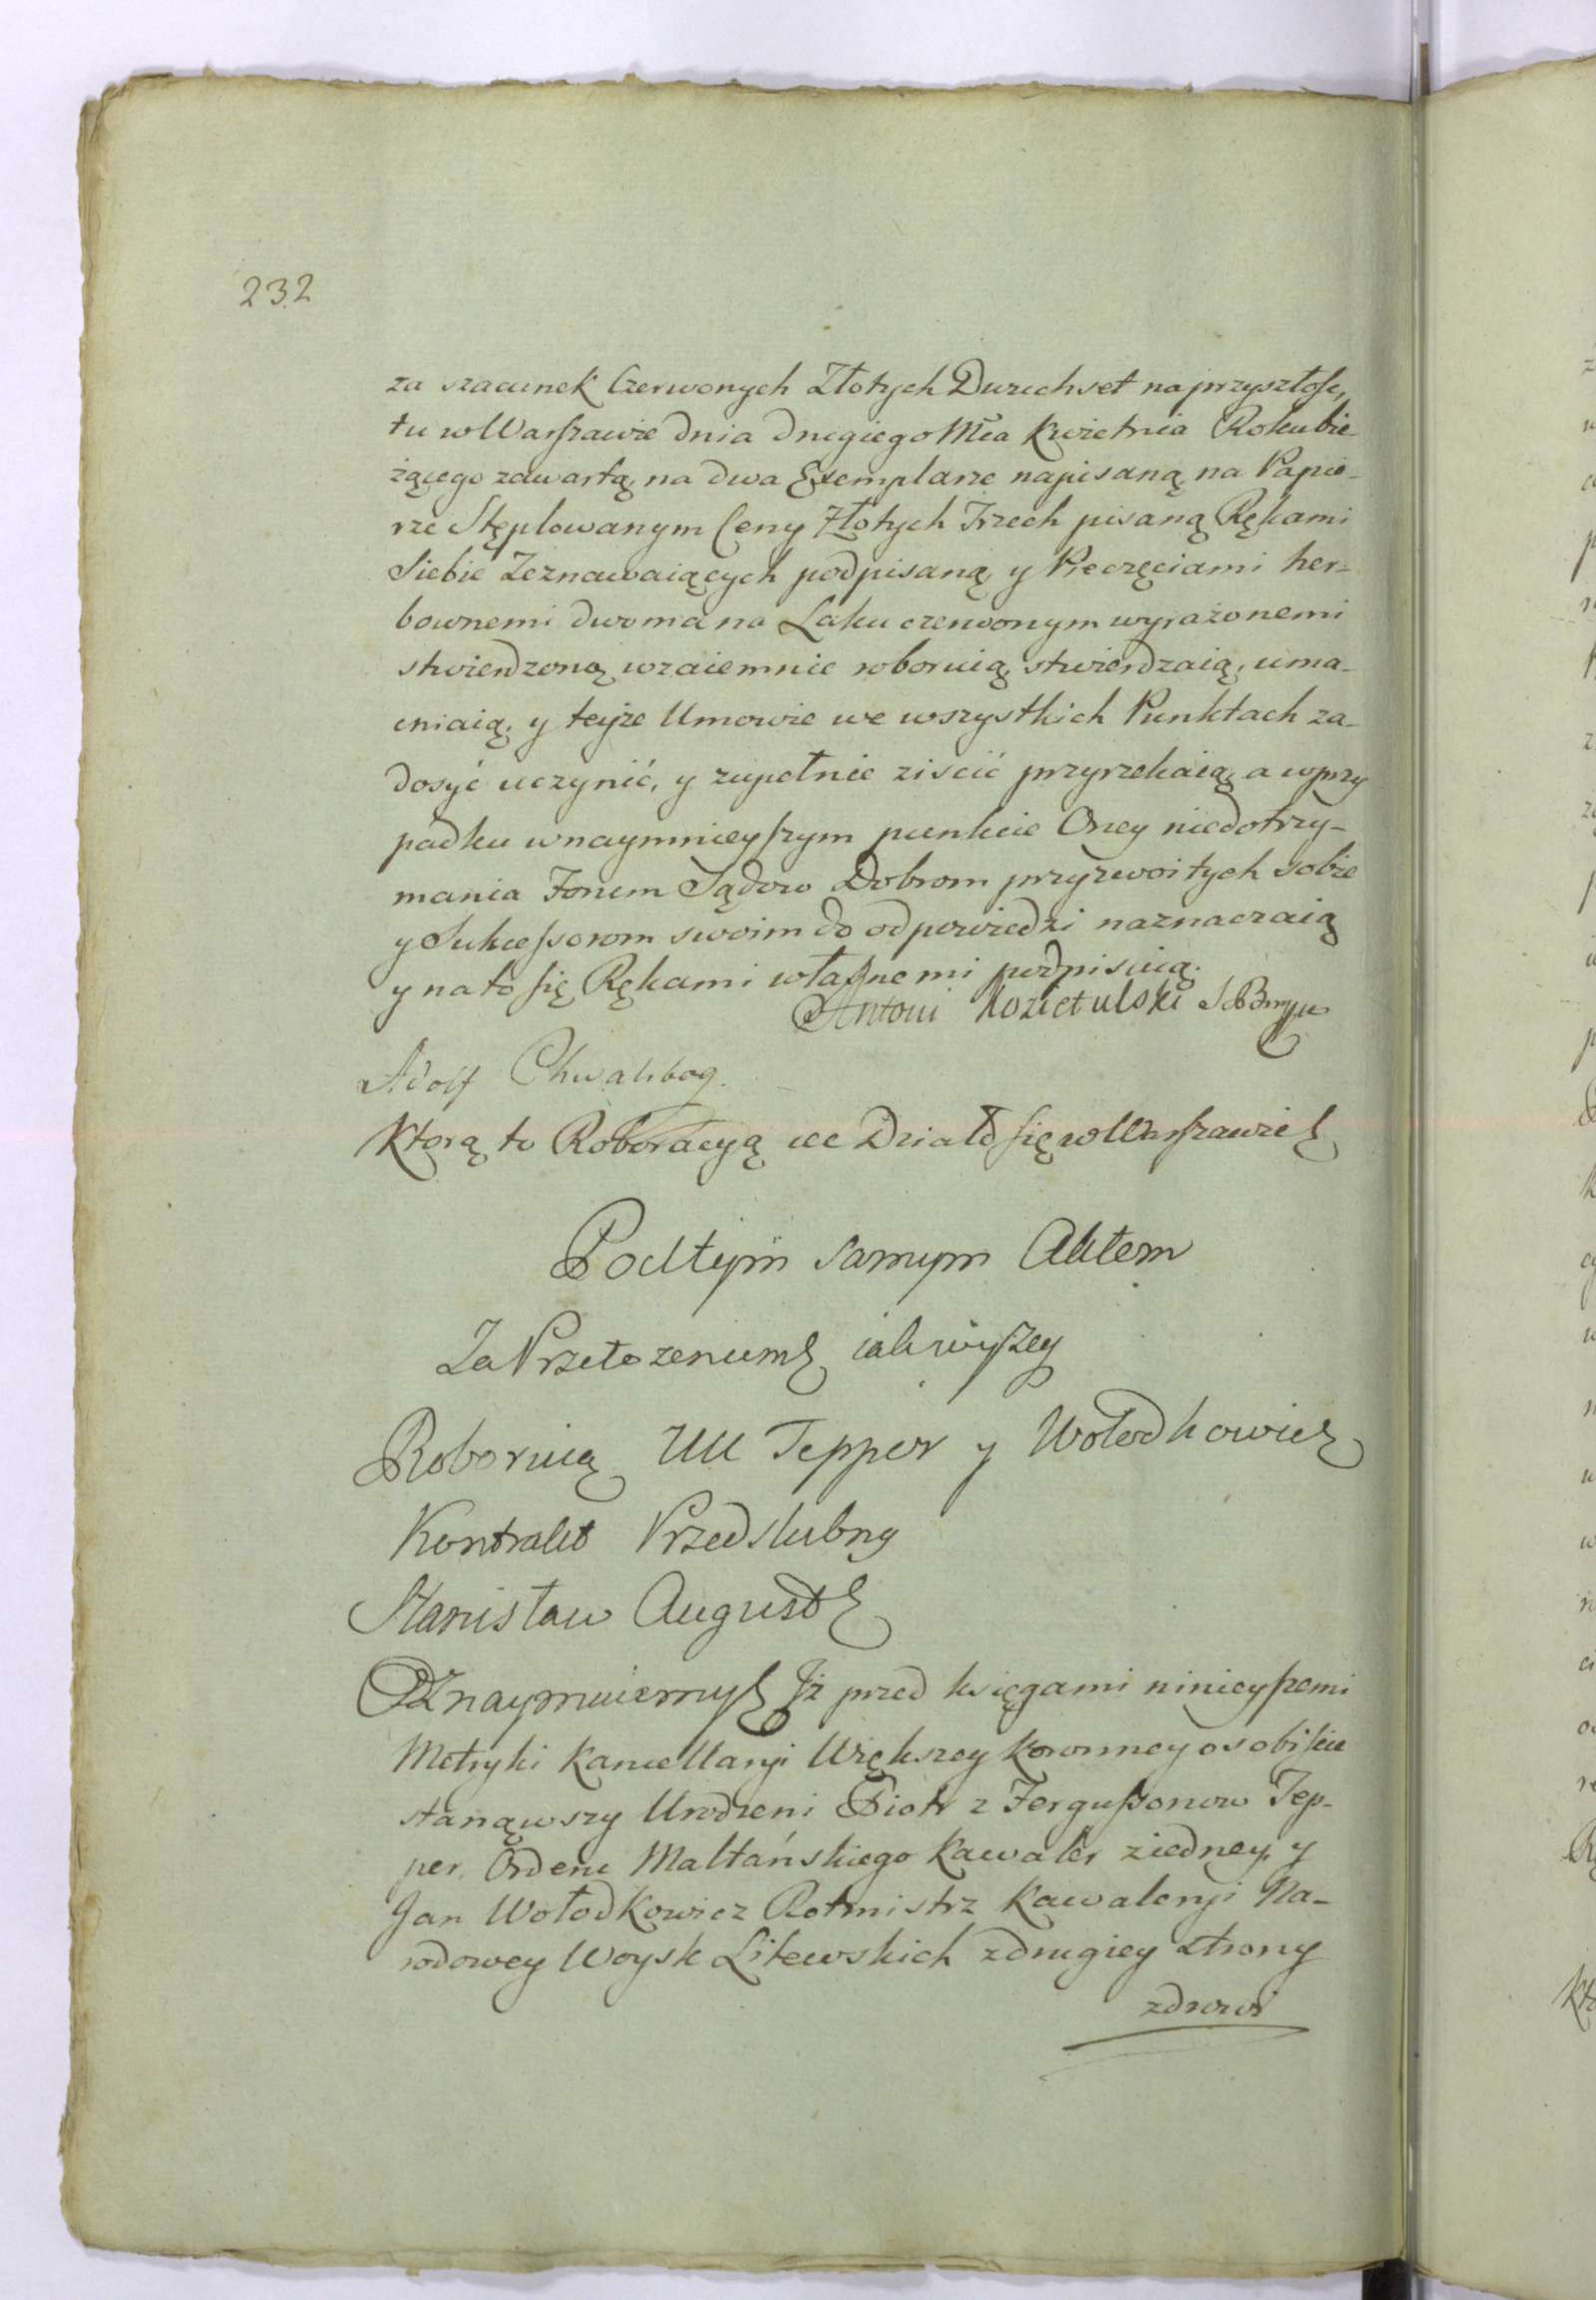 232
za szacunek Czerwonych Złotych Dwuchset na przyszłość,
tu w Warszawie dnia drugiego Mca Kwietnia Roku bie-
żącego zawartą, na dwa Exemplarze napisaną, na Papie-
rze Stęplowanym Ceny Złotych Trzech pisaną Rękami
Siebie Zeznawaiących podpisaną, y Pieczęciami her-
bownemi dwoma na Laku czerwonym wyrażonemi
stwierdzoną wzaiemnie roboruią, stwierdzaią, uma-
cniaią, y teyże Umowie we wszystkich Punktach za-
dosyć uczynić, y zupełnie ziścić przyrzekaią, a w przy
padku w naymnieyszym punkcie Oney niedotrzy-
mania Forum Sądow Dobrom przyzwoitych sobie
y Sukcessorom swoim do odpowiedzi naznaczaią
y na to się Rękami własnemi podpisuią.
Antoni Kozietulski
Adolf Chwalibog.
Ktorą to Roboracyą etc Działo się w Warszawie
Pod tym samym Aktem
Za Przełożeniem jak wyszey
Roboruią UU Tepper y Wołodkowicz
Kontrakt Przedslubny
Stanisław August
Oznaymuiemy Iż przed księgami ninieyszemi
Metryki Kancellaryi Większey Koronney osobiście
stanąwszy Urodzeni Piotr z Fergussonow Tep-
per, Orderu Maltańskiego Kawaler z iedney, y
Jan Wołodkowicz Rotmistrz Kawaleryi Na-
rodowey Woysk Litewskich z drugiey strony
zdrowi